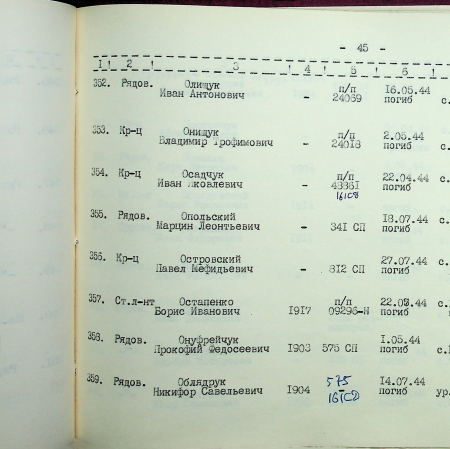 - 45 -
1 ! 2 ! 3 ! 4 ! 5 ! 6 !
352. Рядов. Олищук п/п 16.05.44
Иван Антонович - 24069 погиб с.
353. Кр-ц Онищук п/п 2.05.44
Владимир Трофимович - 24018 погиб с.
354. Кр-ц Осадчук п/п 22.04.44 с.
Иван Яковлевич - 43361 погиб
161СД
355. Рядов. Опольский 18.07.44 с.
Марцин Леонтьевич - 341 СП погиб
356. Кр-ц Островский 27.07.44 с.
Павел Мефидьевич - 812 СП погиб
357. Ст.л-нт Остапенко п/п 22.03.44 с.
Борис Иванович 1917 09296-Н погиб
358. Рядов. Онуфрейчук 1.05.44
Прокофий Федосеевич 1903 575 СП погиб с.
359. Рядов. Облядрук 575 14.07.44
Никифор Савельевич 1904 161СД погиб ур.